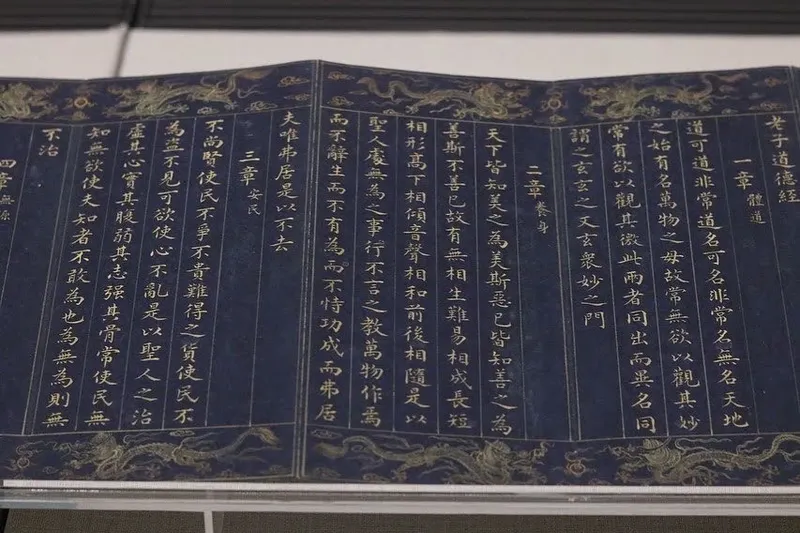 老子道德經
一章 體道
道可道非常道名可名非常名無名天地
之始有名萬物之母故常無欲以觀其妙
常有欲以觀其徼此兩者同出而異名同
謂之玄玄之又玄衆妙之門
二章 養身
天下皆知美之為美斯惡已皆知善之為
善斯不善已故有無相生難易相成長短
相形高下相傾音聲相和前後相隨是以
聖人處無為之事行不言之教萬物作焉
而不辭生而不有為而不恃功成而弗居
夫唯弗居是以不去
三章 安民
不尚賢使民不爭不貴難得之貨使民不
為盜不見可欲使心不亂是以聖人之治
虛其心實其腹弱其志强其骨常使民無
知無欲使夫知者不敢為也為無為則無
不治
四章 無源